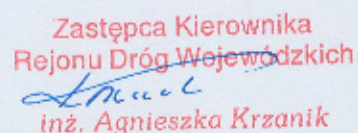 Zastępca Kierownika
Rejonu Dróg Wojewódzkich
inż. Agnieszka Krzanik